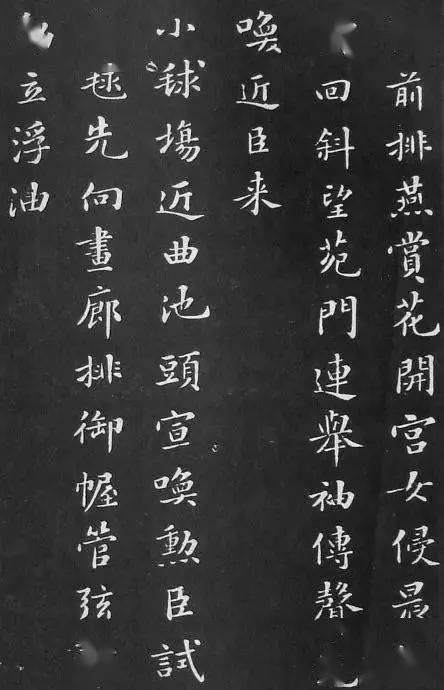 前排燕賞花開宮女侵晨
回斜望苑門連舉袖傳聲
喚近臣来
小毬塲近曲池頭宣喚勲臣試
毬先向畫廊排御幄管弦
立浮油